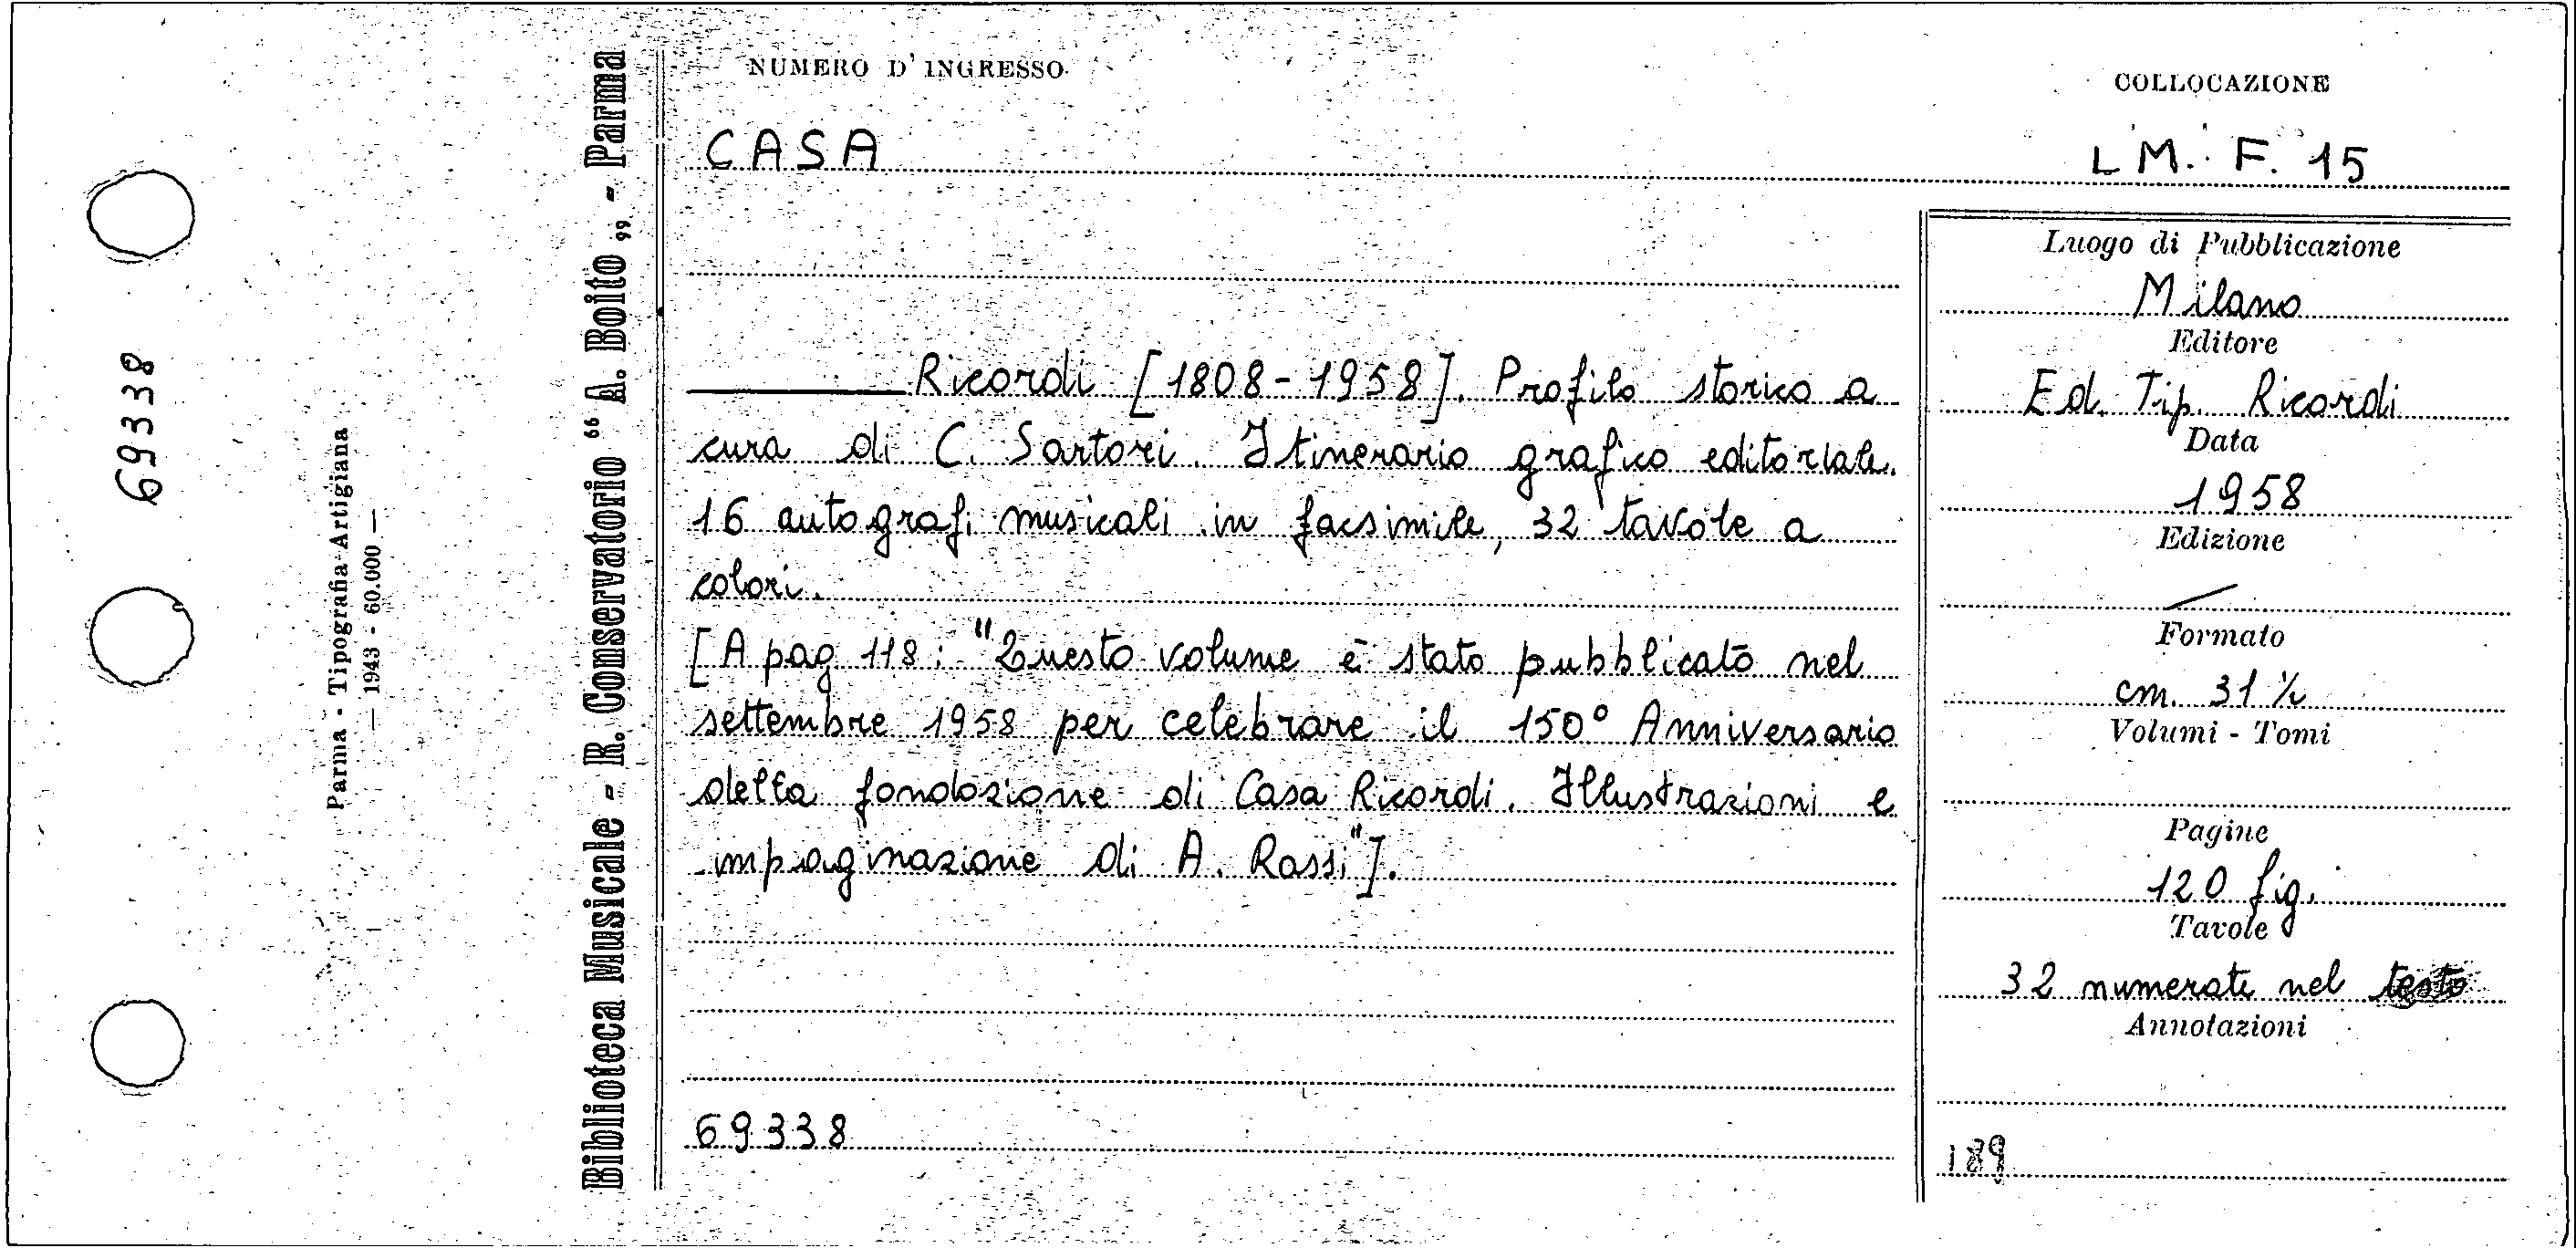 69338
Parma - Tipografia Artigiana
— 1943 - 60.000 —
Biblioteca Musicale - R. Conservatorio “ A. Boito „ - Parma
NUMERO D' INGRESSO
COLLOCAZIONE
CASA
L M. F. 15
——— Ricordi [1808-1958]. Profilo storico a
cura di C. Sartori. Itinerario grafico editoriale.
16 autografi musicali in facsimile, 32 tavole a
colori.
[A pag 118: "Questo volume è stato pubblicato nel
settembre 1958 per celebrare il 150° Anniversario
della fondazione di Casa Ricordi. Illustrazioni e
impaginazione di A. Rossi"].
69338
Luogo di Pubblicazione
Milano
Editore
Ed. Tip. Ricordi
Data
1958
Edizione
/
Formato
cm. 31 ½
Volumi - Tomi
Pagine
120 fig.
Tavole
32 numerate nel testo
Annotazioni
189